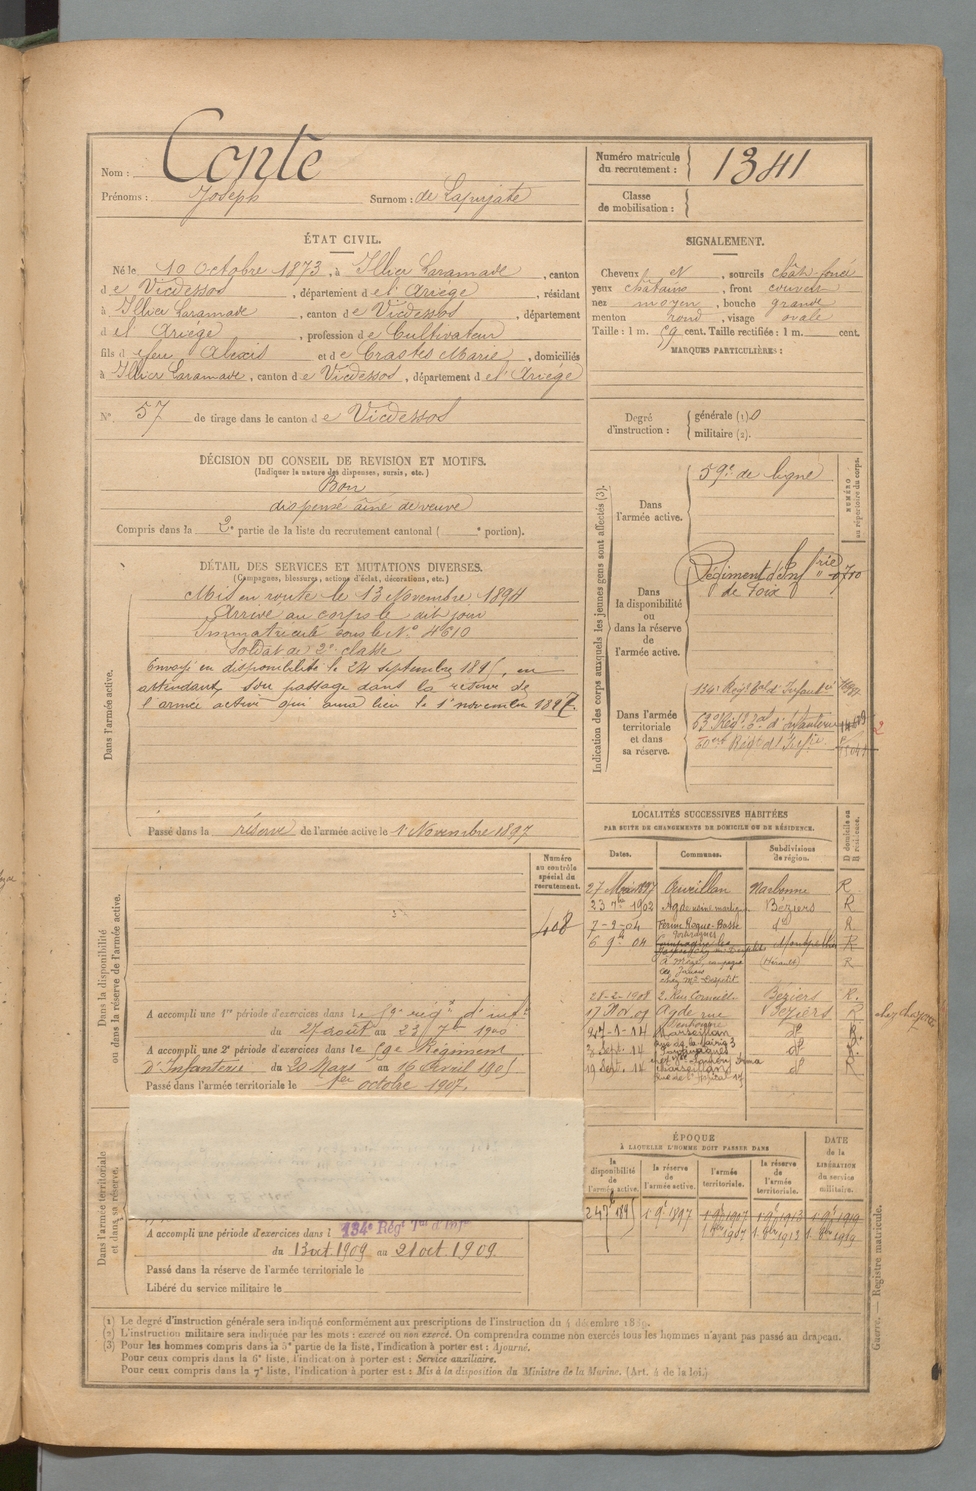 Nom : Conte
Prénoms : Joseph Surnom : de Lapujate
Numéro matricule du recrutement : 1341
Classe de mobilisation :
ÉTAT CIVIL.
Né le 10 Octobre 1873, à Illier Laramade, canton
de Vicdessos, département de l'Ariège, résidant
à Illier Laramade, canton de Vicdessos, département
de l'Ariège, profession de Cultivateur
fils de feu Alexis et de Crastes Marie, domiciliés
à Illier Laramade, canton de Vicdessos, département de l'Ariège
N° 57 de tirage dans le canton de Vicdessos
SIGNALEMENT.
Cheveux et , sourcils chât. foncé
yeux châtains , front couvert
nez moyen , bouche grande
menton rond , visage ovale
Taille : 1 m. 59 cent. Taille rectifiée : 1 m. cent.
MARQUES PARTICULIÈRES :
Degré d'instruction : générale (1). 0
militaire (2).
DÉCISION DU CONSEIL DE REVISION ET MOTIFS.
(Indiquer la nature des dispenses, sursis, etc.)
Bon
dispensé aîné de veuve
Compris dans la 2e partie de la liste du recrutement cantonal ( e portion).
DÉTAIL DES SERVICES ET MUTATIONS DIVERSES.
(Campagnes, blessures, actions d'éclat, décorations, etc.)
Dans l'armée active.
Mis en route le 13 Novembre 1894
Arrivé au corps le dit jour
Immatriculé sous le N° 4610
Soldat de 2e classe
Envoyé en disponibilité le 24 septembre 1895, en
attendant son passage dans la réserve de
l'armée active qui aura lieu le 1er novembre 1897.
Passé dans la réserve de l'armée active le 1 Novembre 1897
Indication des corps auxquels les jeunes gens sont affectés (3).
NUMÉRO au répertoire du corps.
Dans l'armée active.
59e de ligne
Dans la disponibilité ou dans la réserve de l'armée active.
Régiment d'Infrie
de Foix
Dans l'armée territoriale et dans sa réserve.
134e Régt Tal d'Infantie
LOCALITÉS SUCCESSIVES HABITÉES
PAR SUITE DE CHANGEMENTS DE DOMICILE OU DE RÉSIDENCE.
D domicile ou R résidence.
Dates. Communes. Subdivisions de région.
27 1897 Cuvillan Narbonne R.
23 7bre 1902 Agde Béziers R
7-2-04 Ferme Roque-Basse do R.
6 9b 04 Montpellier R
à Mèze, campagne (Hérault) R
chez Mr Despetit
28-2-1908 2, Rue Corneille Béziers R.
17 Nov. 09 Agde rue Béziers R
Marseillan do R.
2 Sept. 14 do R.
19 Sept. 14 Marseillan do R
Rue de l'hôpital
Dans la disponibilité ou dans la réserve de l'armée active.
Numéro au contrôle spécial du recrutement.
408
A accompli une 1re période d'exercices dans le 59e régt d'inf.
du 27 août au 23 7bre 1900
A accompli une 2e période d'exercices dans le 59e Régiment
d'Infanterie du 20 Mars au 16 Avril 1905
Passé dans l'armée territoriale le 1er octobre 1907.
Dans l'armée territoriale et dans sa réserve.
A accompli une période d'exercices dans l 134e Régt Tal d'Infie
du 13 oct. 1909 au 21 oct. 1909.
Passé dans la réserve de l'armée territoriale le
Libéré du service militaire le
ÉPOQUE
À LAQUELLE L'HOMME DOIT PASSER DANS
DATE de la LIBÉRATION du service militaire.
la disponibilité de l'armée active. la réserve de l'armée active. l'armée territoriale. la réserve de l'armée territoriale.
24 7b 1895 1 9b 1897 1 9b 1907 1 9b 1913 1 9b 1919
1 8bre 1907 1 8bre 1913 1 8bre 1919
(1) Le degré d'instruction générale sera indiqué conformément aux prescriptions de l'instruction du 4 décembre 1889.
(2) L'instruction militaire sera indiquée par les mots : exercé ou non exercé. On comprendra comme non exercés tous les hommes n'ayant pas passé au drapeau.
(3) Pour les hommes compris dans la 5e partie de la liste, l'indication à porter est : Ajourné.
Pour ceux compris dans la 6e liste, l'indication à porter est : Service auxiliaire.
Pour ceux compris dans la 7e liste, l'indication à porter est : Mis à la disposition du Ministre de la Marine. (Art. 4 de la loi.)
Guerre. — Registre matricule.